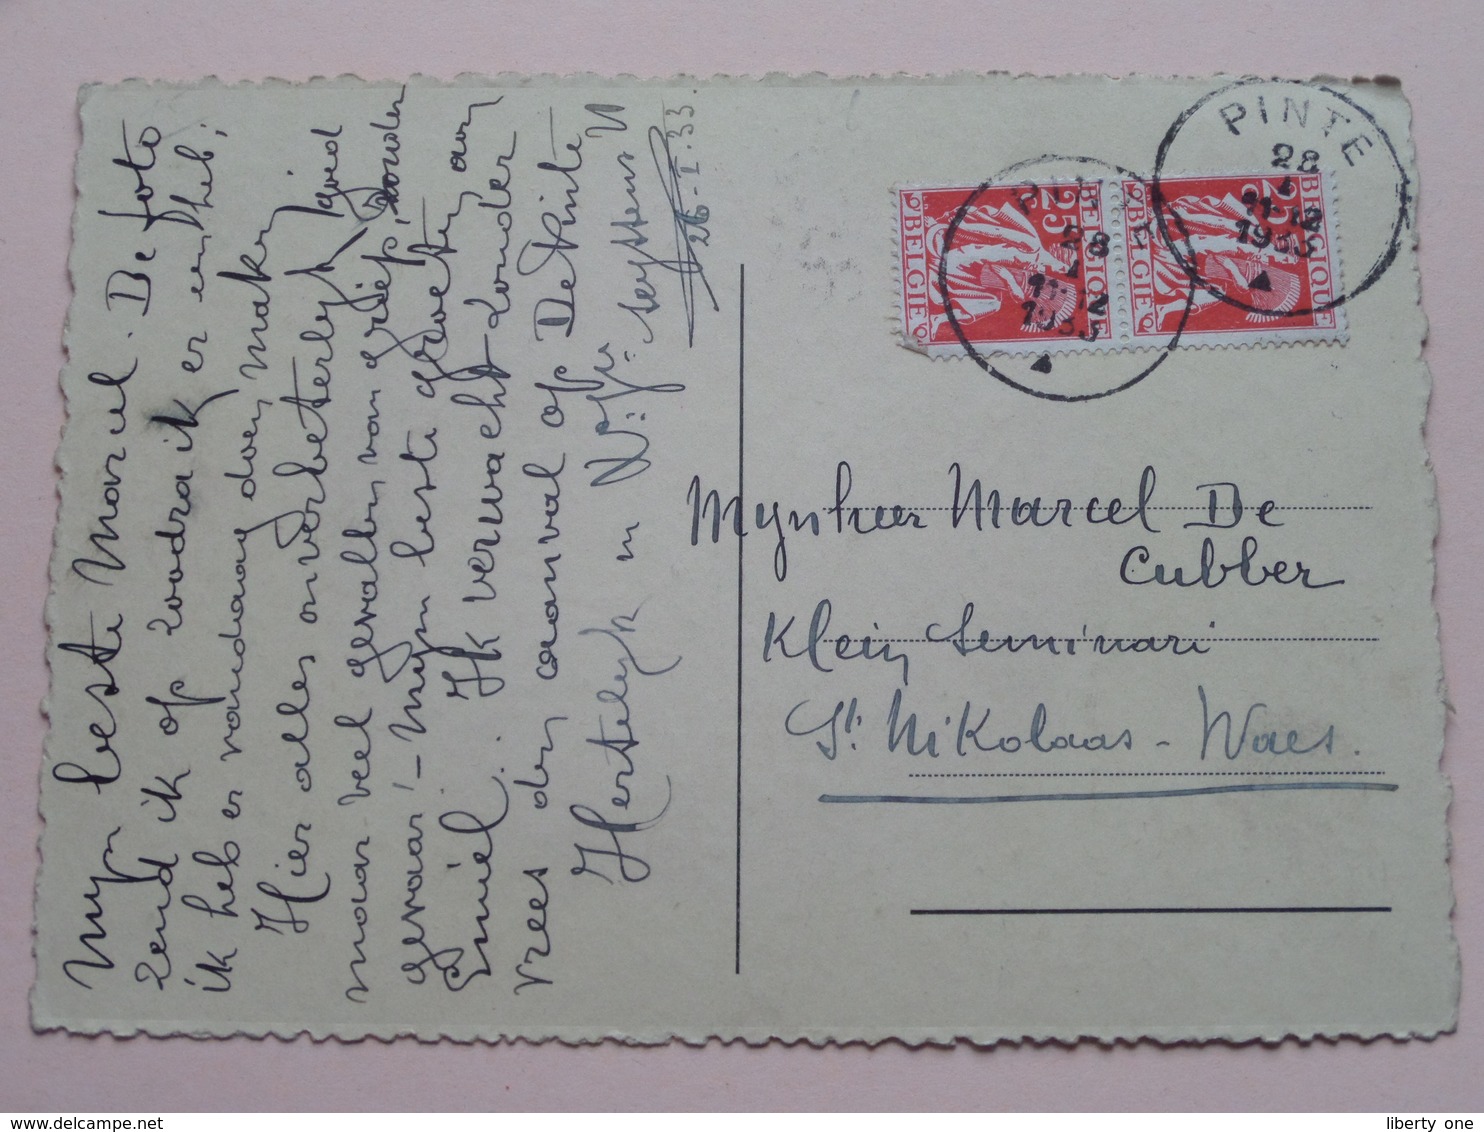 Mijn beste Marcel. De foto
zend ik op zoodra ik er een heb;
ik heb er vandaag doen maken
Hier alles onverbeterlijk goed
maar veel gevallen van griep, zonder
gevaar! – Mijn beste groeten aan
Emiel. Ik verwacht zonder
vrees den aanval op De Pinte
Hertelijk in
26-I-33.
PINTE
28
1
11-12
1933
PINTE
28
1
11-12
1933
BELGIE 25 BELGIQUE
BELGIE 25 BELGIQUE
Mynheer Marcel De
Cubber
Klein Seminari
St. Nikolaas - Waes.
www.delcampe.net
liberty one